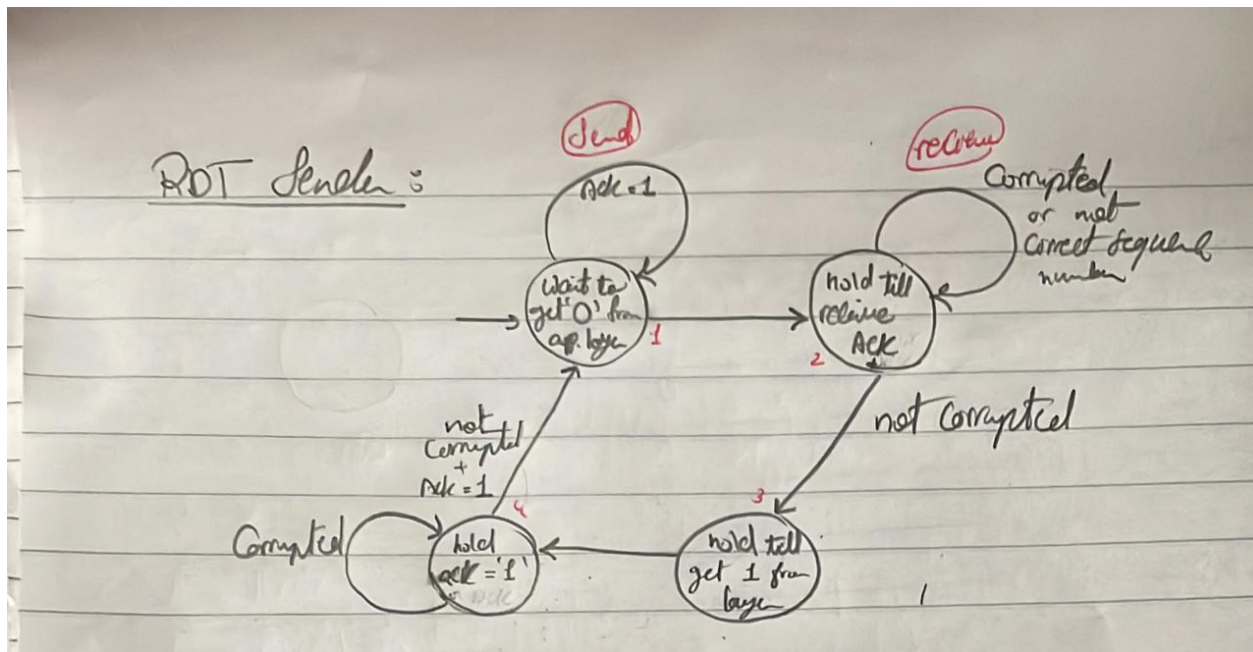 Send
recieve
RDT Sender :
Ack = 1
Corrupted
or not
Correct Sequence
number
wait to
get '0' from
ap. layer
1
hold till
relieve
ACK
2
not
Corrupted
+
Ack = 1
not Corrupted
3
4
Corrupted
hold
ack = '1'
hold till
get 1 from
layer